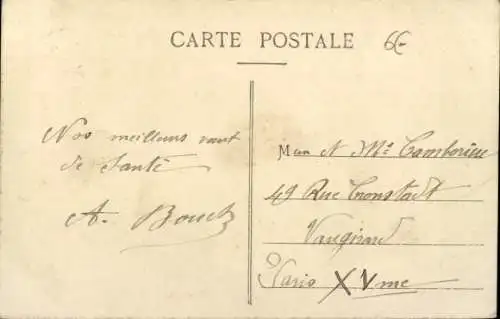 CARTE POSTALE
6-
Nos meilleurs vœut
de Santé
A.
M et Mme
49 Rue Cronstadt
Vaugirard
Paris XVme